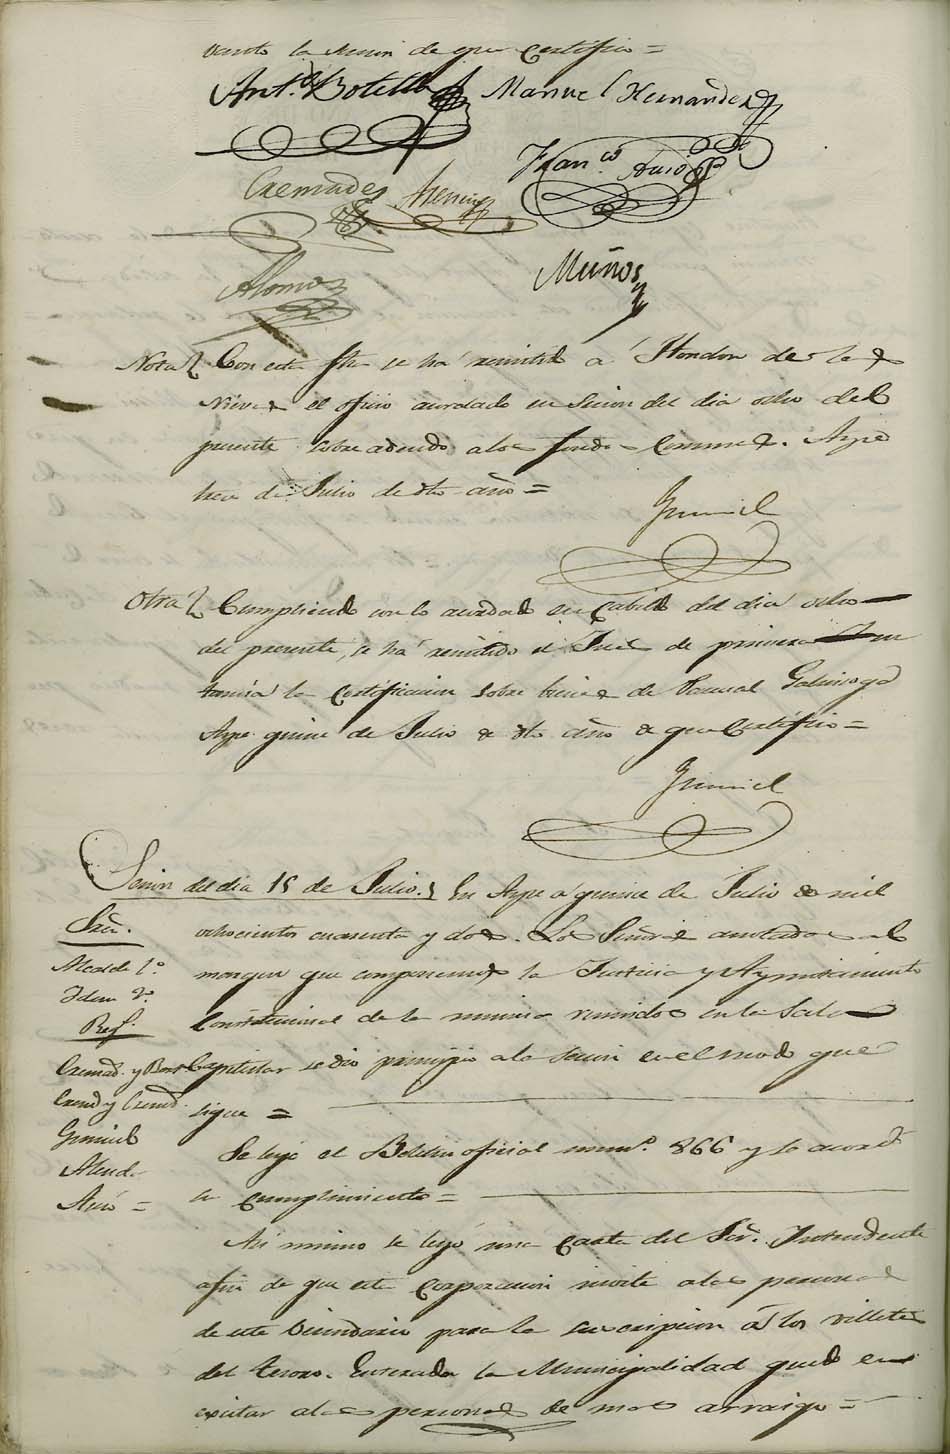 vanto la sesion de que certifico =
Ant.º Botella Manuel Hernandez
Fran.co Azno
Cremades Asensi
Alonso Muños
Nota Con esta fha se ha remitido a Hondon de las
Nieves el oficio acordado en Sesion del dia ocho del
presente sobre adeudo a los fondos Comunes. Aspe
trece de Julio de dho año =
Gumiel
Otra Cumpliendo con lo acordado en Cabildo del dia ocho
del presente, se ha remitido al Juez de primera Ins
tancia la Certificacion sobre bienes de Pascual Galinsoga
Aspe quince de Julio de dho año de que Certifico =
Gumiel
Sesion del dia 15 de Julio. En Aspe a quince de Julio de mil
ochocientos cuarenta y dos. Los Señores anotados al
margen que componen la Justicia y Ayuntamiento
Constitucional de la misma reunidos en la Sala
Capitular se dio principio a la sesion en el modo que
sigue =
Sres.
Alcalde 1.º
Idem 2.º
Reg.s
Cremad. y Bot.
Cremd y Cremd.
Gumiel
Azno =
Se leyo el Boletin oficial num.º 866 y se acordó
su cumplimiento =
Asi mismo se leyó una Carta del Sor. Intendente
afin de que esta Corporacion invite a las personas
de este Vecindario para la suscripcion á los villetes
del tesoro. Enterada la Municipalidad quedó en
excitar a las personas de mas arraigo =